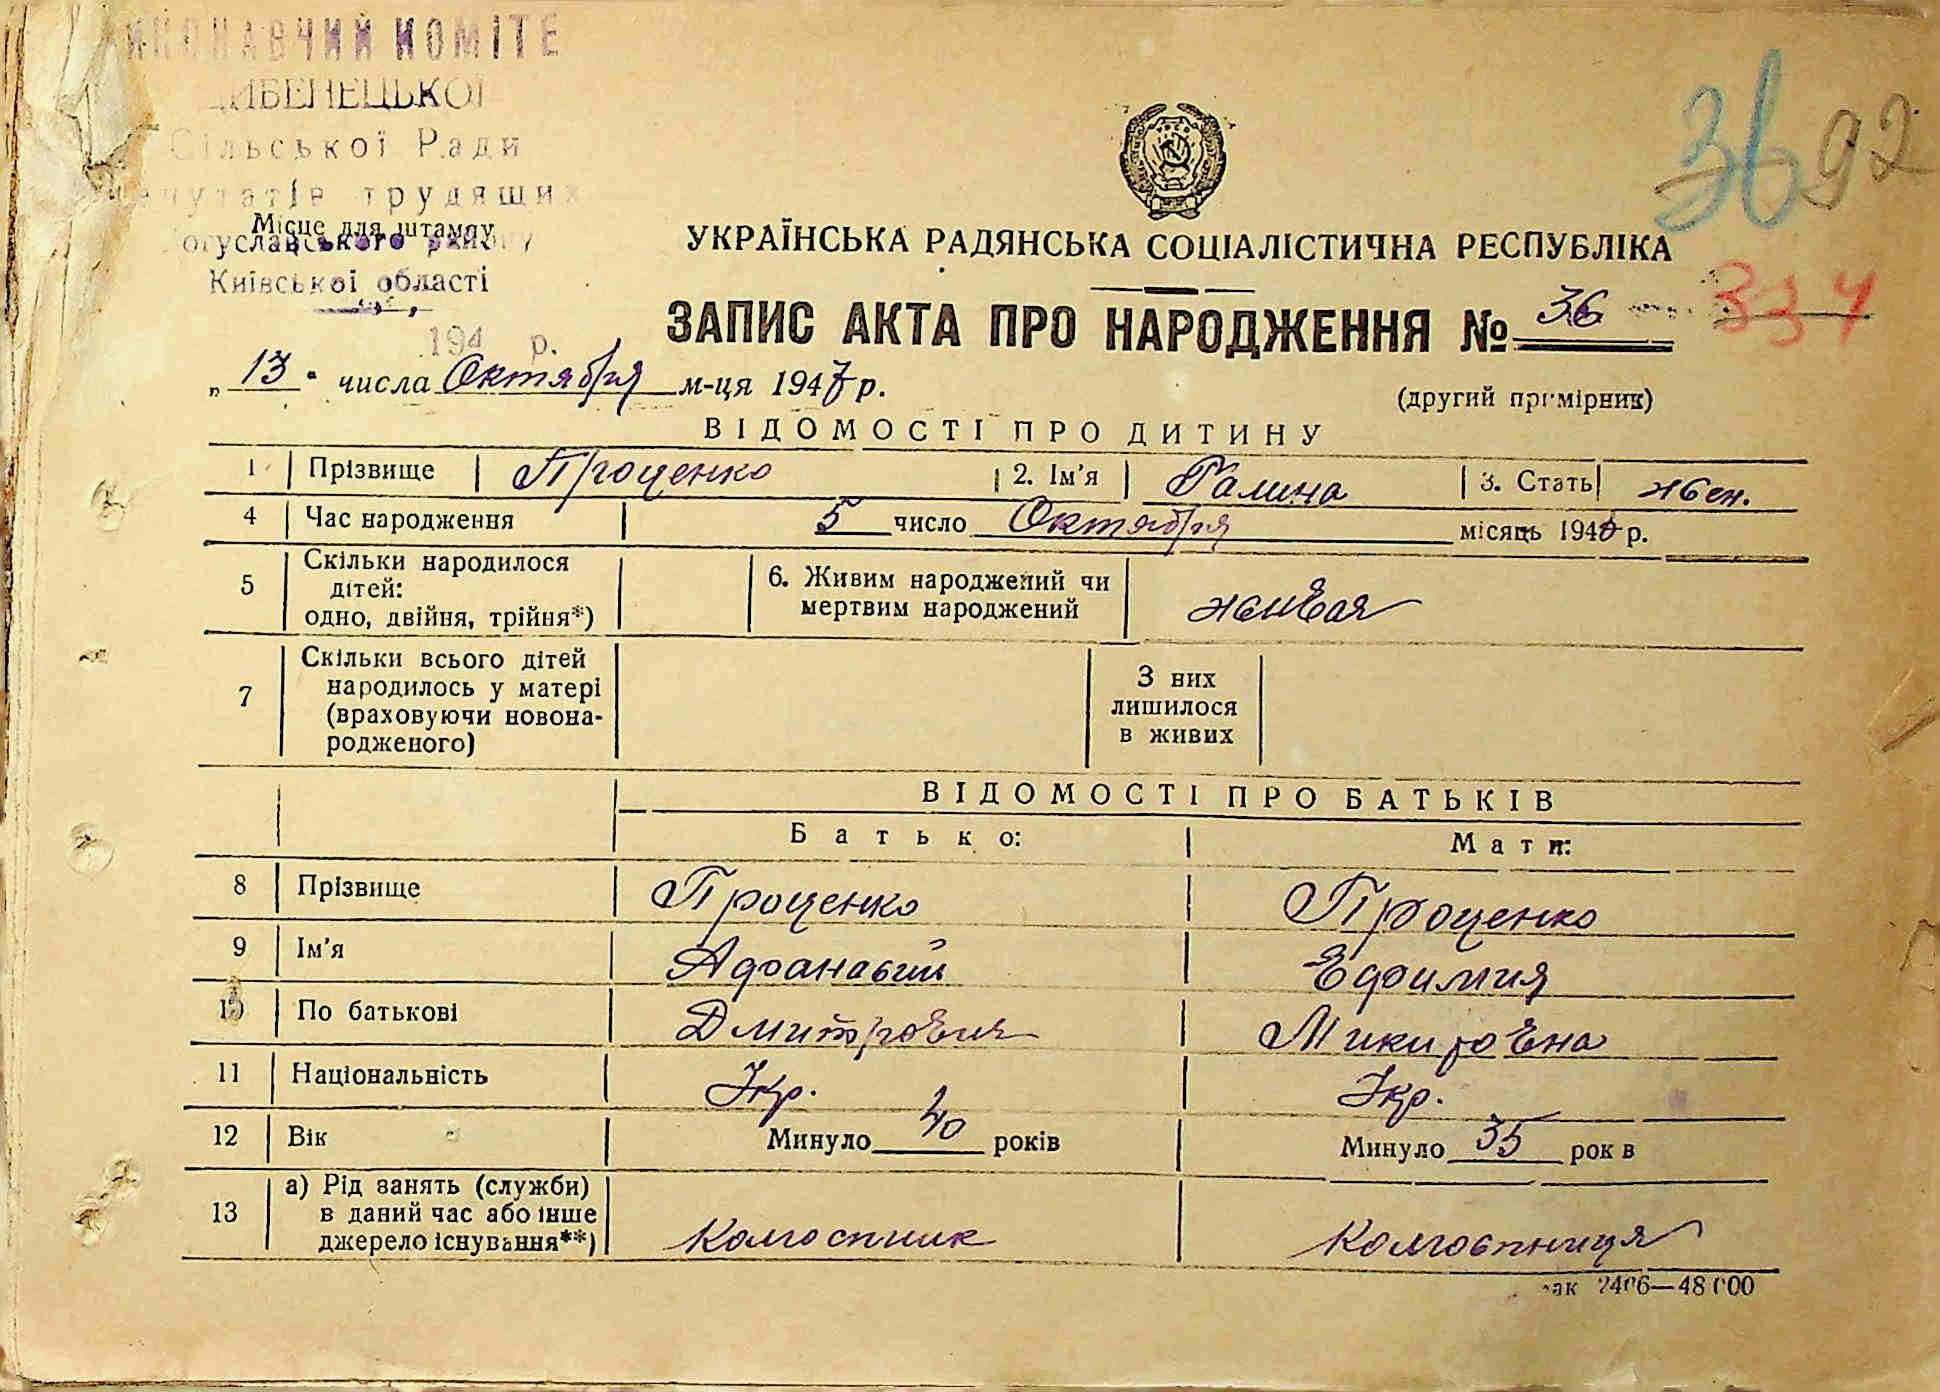 ВИКОНАВЧИЙ КОМІТЕ
ДИБЕНЕЦЬКОЇ
Сільської Ради
депутатів трудящих
Місце для штампу
Богуславського району
Київської області
194 р.
36 92
УКРАЇНСЬКА РАДЯНСЬКА СОЦІАЛІСТИЧНА РЕСПУБЛІКА
ЗАПИС АКТА ПРО НАРОДЖЕННЯ № 36 334
„13" числа Октября м-ця 1947 р.
(другий примірник)
ВІДОМОСТІ ПРО ДИТИНУ
1 Прізвище Проценко 2. Ім'я Галина 3. Стать жен.
4 Час народження 5 число Октября місяць 194 р.
5 Скільки народилося дітей: одно, двійня, трійня*) 6. Живим народжений чи мертвим народжений живая
7 Скільки всього дітей народилось у матері (враховуючи новонародженого) З них лишилося в живих
ВІДОМОСТІ ПРО БАТЬКІВ
Батько: Мати:
8 Прізвище Проценко Проценко
9 Ім'я Афанасий Ефимия
10 По батькові Дмитрович Микитовна
11 Національність Укр. Укр.
12 Вік Минуло 40 років Минуло 35 рок в
13 а) Рід занять (служби) в даний час або інше джерело існування**) Колгоспник Колгоспниця
Зак 2406—48000